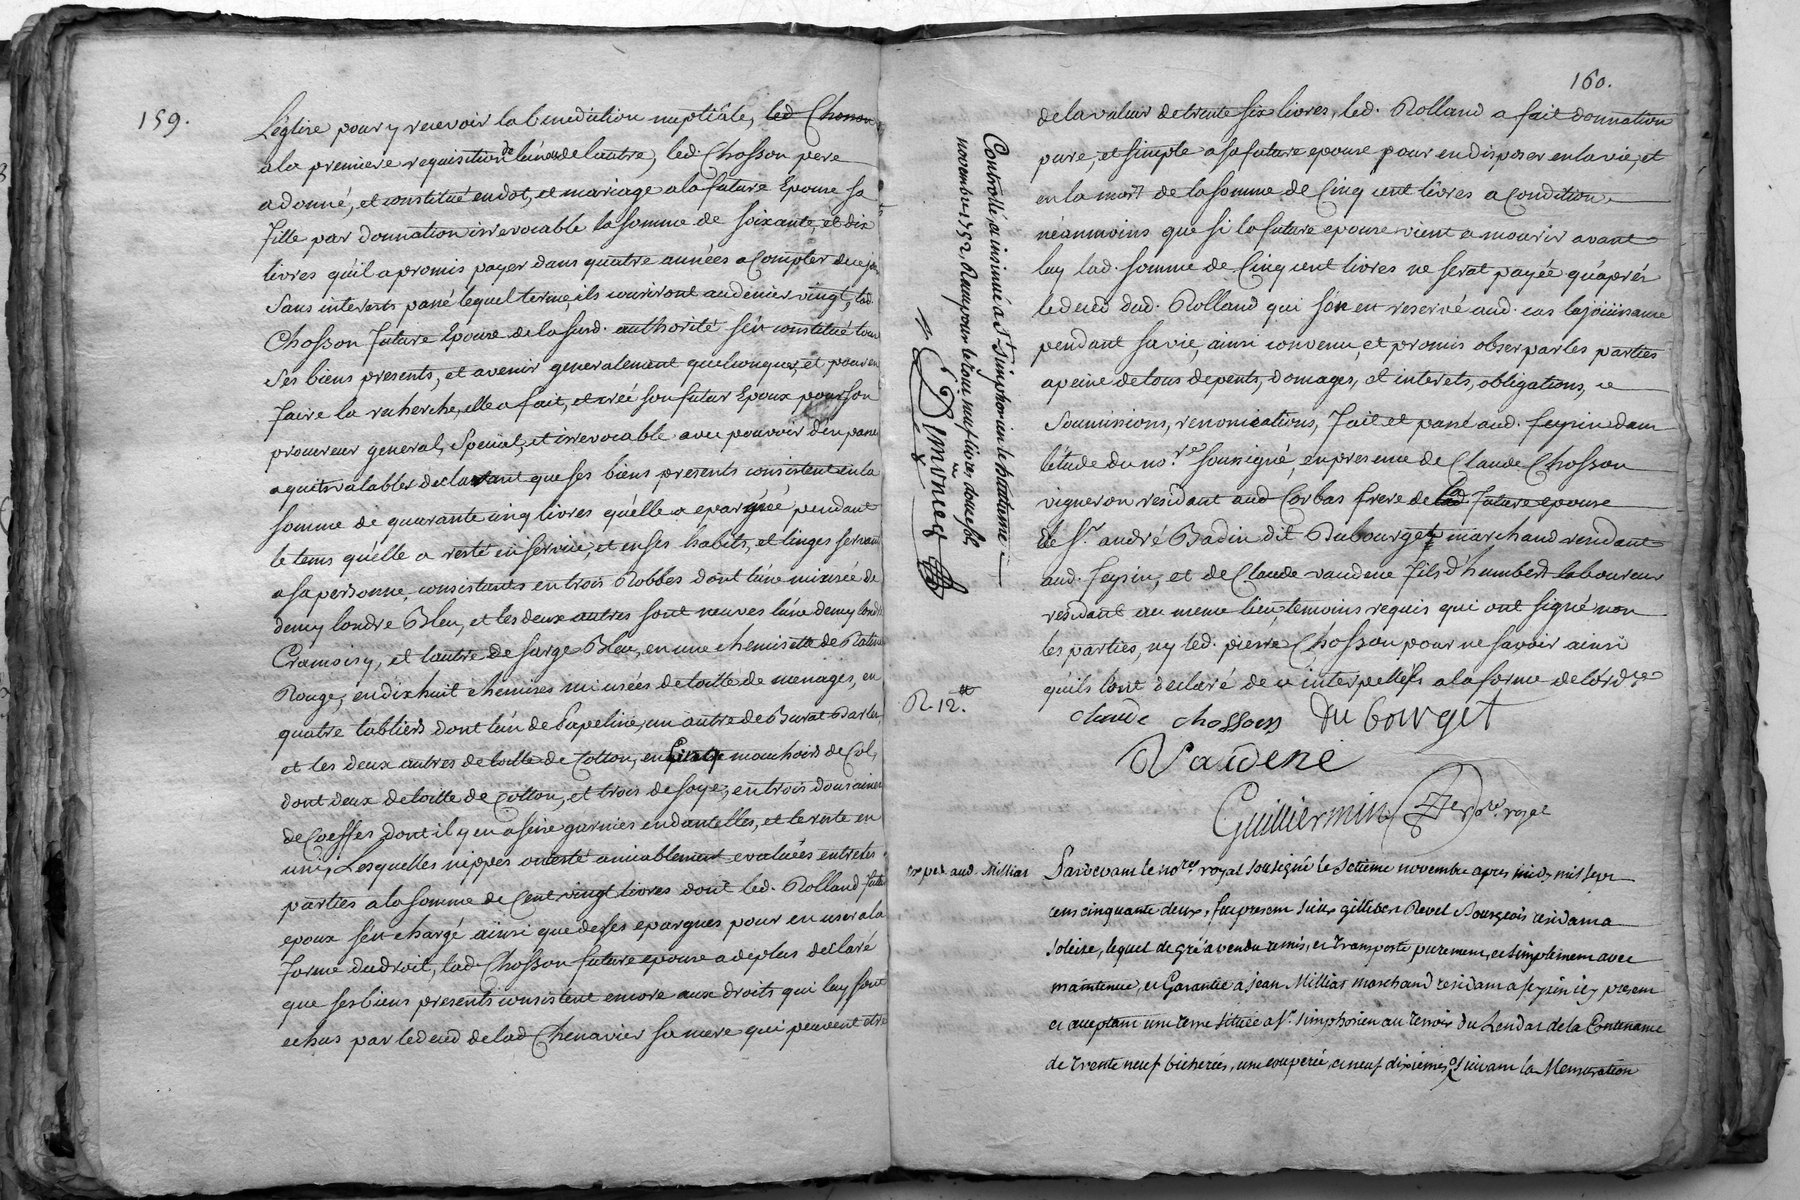 159.
L'église pour y recevoir la benediction nuptiâle, led Chosson
a la premiere requisition de lun ou de lautre, led. Chosson pere
a donné, et constitué en dot, et mariage a la future Epouse sa
fille par donnation irrevocable la somme de soixante, et dix
livres qu'il a promis payer dans quatre années a Compter de ce jour
sans interests passé lequel terme, ils couriront au denier vingt, lad.
Chosson future Epouse de la susd. authorité s'est constitué tous
ses biens presents, et avenir generalement quelconques, et pour en
faire la recherche, elle a fait, et créé son futur Epoux pour son
procureur general, special, et irrevocable avec pouvoir d'en passer
aquits valables declarant que ses biens presents consistent en la
somme de quarante cinq livres qu'elle a epargnée, pendant
le tems qu'elle a resté en service, et en ses habits, et linges servant
a sa personne, consistants en trois Robbes dont l'une miusée de
demy londre Bleu, et les deux autres sont neuves l'une demy londre
Cramoisy, et l'autre de sarge Bleu, en une chemisette de Ratine
Rouge, en dix huit chemises mi usées de toille de menages, en
quatre tabliers dont l'un de Papeline, un autre de Burat
et les deux autres de toille de Cotton, en Cinq mouchoirs de Col,
dont deux de toille de Cotton, et trois de soye, en trois douzaines
de Coeffes dont il y en a seize garnies en dantelles, et le reste en
unis, Lesquelles nippes ont esté amiablement evaluées entre les
parties a la somme de Cent vingt livres dont led. Rolland futur
epoux s'est chargé ainsi que desses epargnes pour en user a la
forme du droit, lad. Chosson future epouse a de plus declaré
que ses biens presents consistent encore aux droits qui luy sont
echus par le deced de lad Chenavier sa mere qui peuvent etre
160.
de la valeur de trente six livres, led. Rolland a fait donnation
pure, et simple a sa future epouse pour en disposer en la vie, et
en la mort de la somme de Cinq cent livres a Condition
néanmoins que si la future epouse vient a mourir avant
luy lad. somme de Cinq cent livres ne serat payée qu'aprés
le deced dud. Rolland qui s'en en reservé aud. cas la joüissance
pendant sa vie, ainsi convenu, et promis observer par les parties
a peine de tous depents, domages, et interets, obligations,
soumissions, renonciations, fait et passé aud. feysin dans
l'étude du no.re soussigné, en presence de Claude Chosson
vigneron residant aud Corbas frere de lad future epouse
de Sr. andré Badin dit Dubourget marchand residant
aud. feysin, et de Claude vaudene fils d'humbert laboureur
residant au meme lieu, temoins requis qui ont signé non
les parties, ny led. pierre Chosson pour ne savoir ainsi
qu'ils l'ont declaré de ce interpellés a la forme de l'ord.ce
claude chosson Du bourget
Vaudene
Guilliermin No.re royal
Controllé, et insinué a St. Simphorien le huitieme
novembre 1752, Reçu pour le tout neuf livres douze sols
R. 12.tt
exped aud. Millias
Pardevant le no.re royal soussigné le setieme novembre apres midy mil sept
cens cinquante deux, fut present sieur gilbert Revel Bourgeois residant a
Solaise, lequel de gré a vendu remis, et transporté purement, et simplement avec
maintenue, et Garantie a jean Millias marchand residant a feysin icy present
et aceptant une terre située a St. simphorien au terroir du Lendar de la Contenance
de trente neuf bicherées, une couperée, et neuf dixiemes, suivant la Mensuration